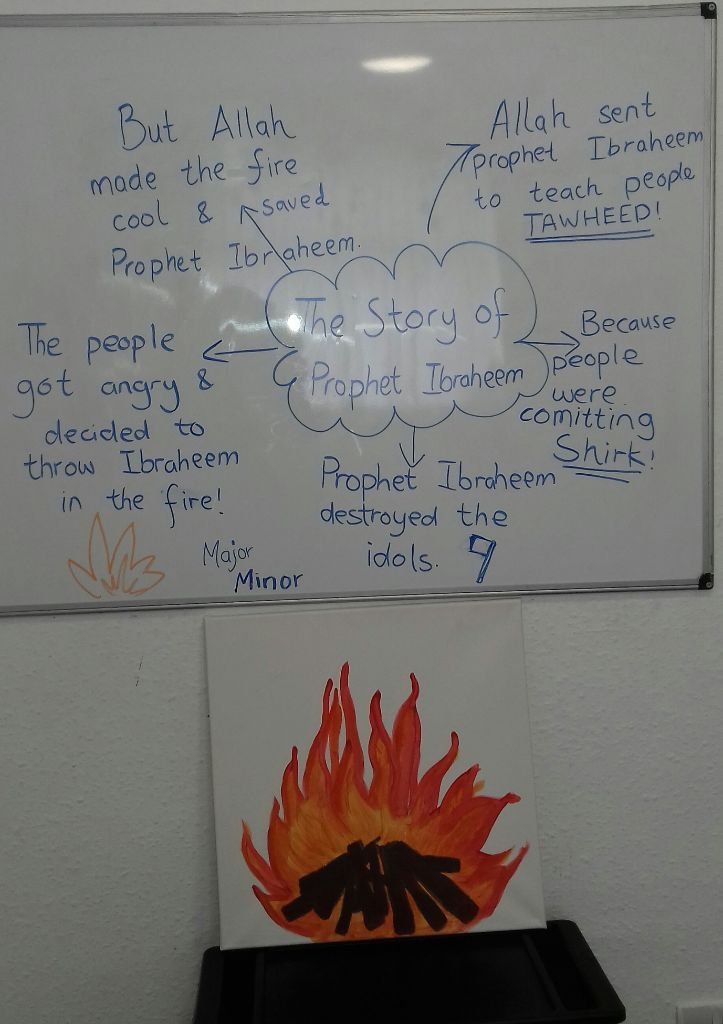 The Story of
Prophet Ibraheem
Allah sent
prophet Ibraheem
to teach people
TAWHEED!
Because
people
were
comitting
Shirk!
Prophet Ibraheem
destroyed the
idols.
The people
got angry &
decided to
throw Ibraheem
in the fire!
But Allah
made the fire
cool & saved
Prophet Ibraheem.
Major
Minor